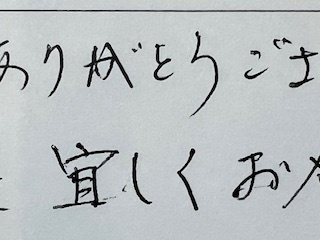 ありがとうござ
宜しくお